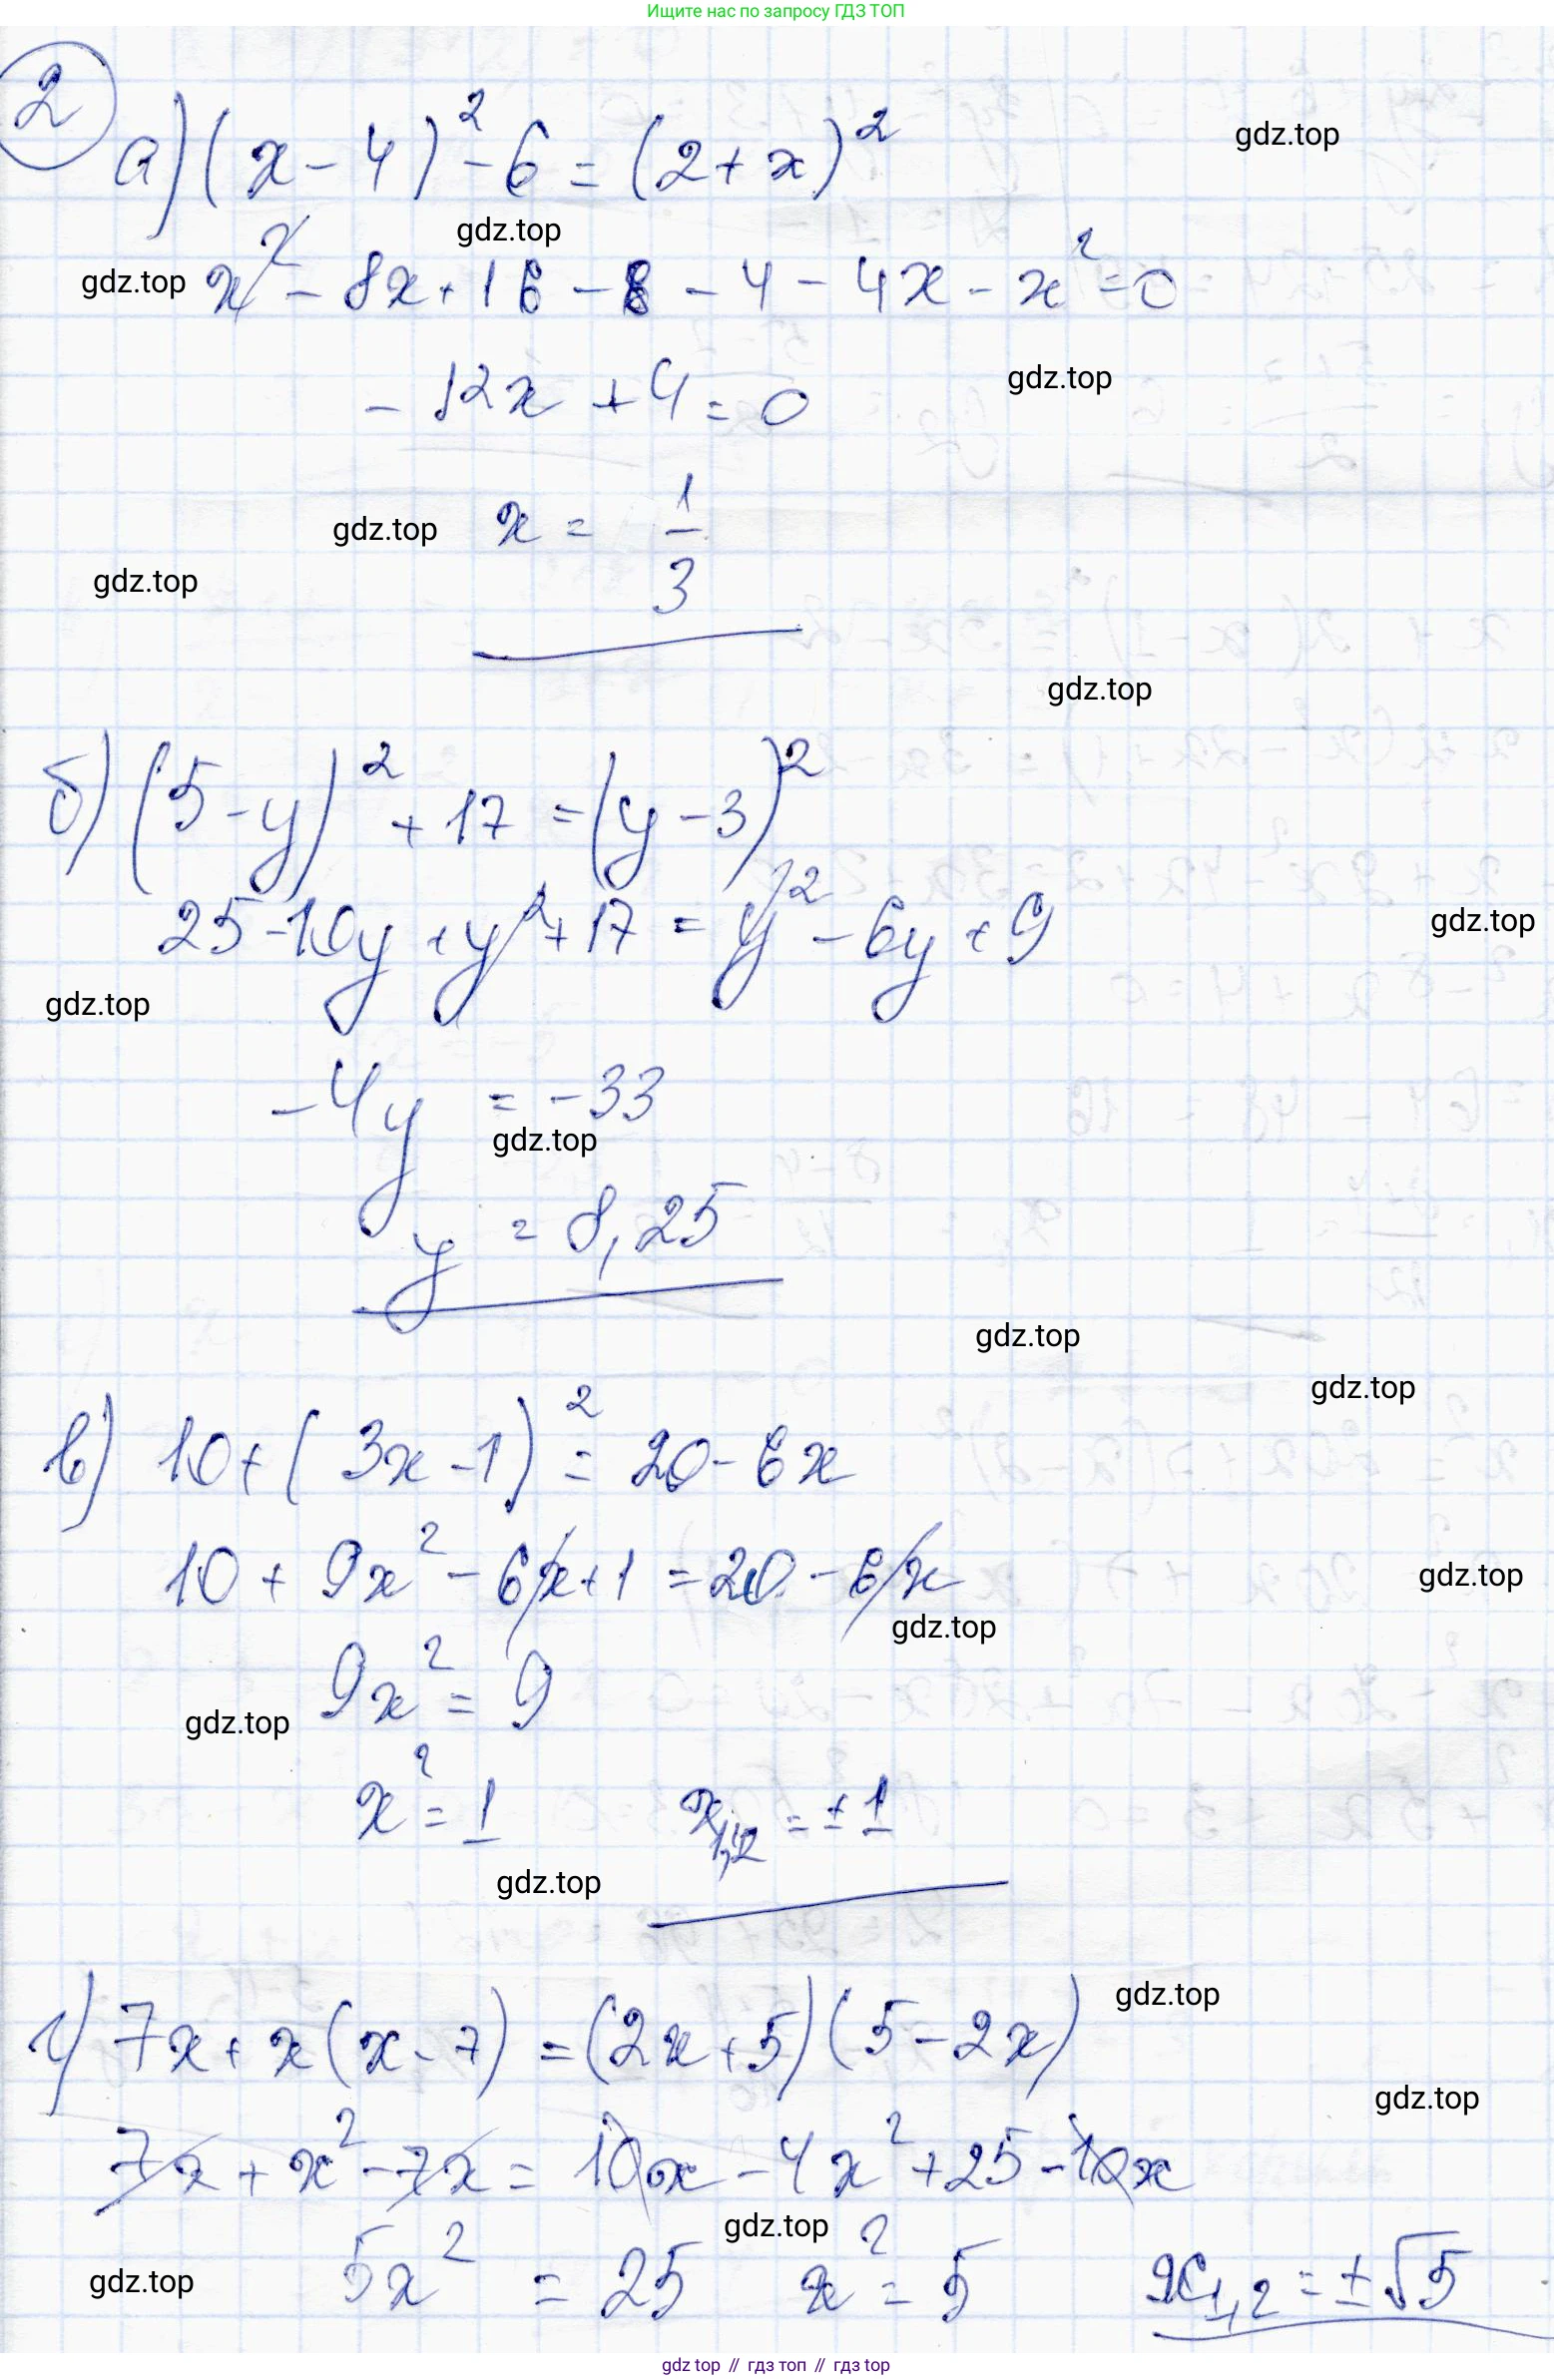 Ищите нас по запросу ГДЗ ТОП
2
а) (x - 4)² - 6 = (2 + x)²
gdz.top
gdz.top
gdz.top
x² - 8x + 16 - 8 - 4 - 4x - x² = 0
- 12x + 4 = 0
gdz.top
gdz.top
x = 1/3
gdz.top
gdz.top
б) (5 - y)² + 17 = (y - 3)²
25 - 10y + y² + 17 = y² - 6y + 9
gdz.top
gdz.top
- 4y = - 33
gdz.top
y = 8,25
gdz.top
gdz.top
в) 10 + (3x - 1)² = 20 - 6x
10 + 9x² - 6x + 1 = 20 - 6x
gdz.top
gdz.top
9x² = 9
gdz.top
x² = 1 x₁,₂ = ± 1
gdz.top
gdz.top
г) 7x + x(x - 7) = (2x + 5)(5 - 2x)
gdz.top
7x + x² - 7x = 10x - 4x² + 25 - 10x
gdz.top
gdz.top
5x² = 25 x² = 5 x₁,₂ = ± √5
gdz top // гдз топ // гдз top